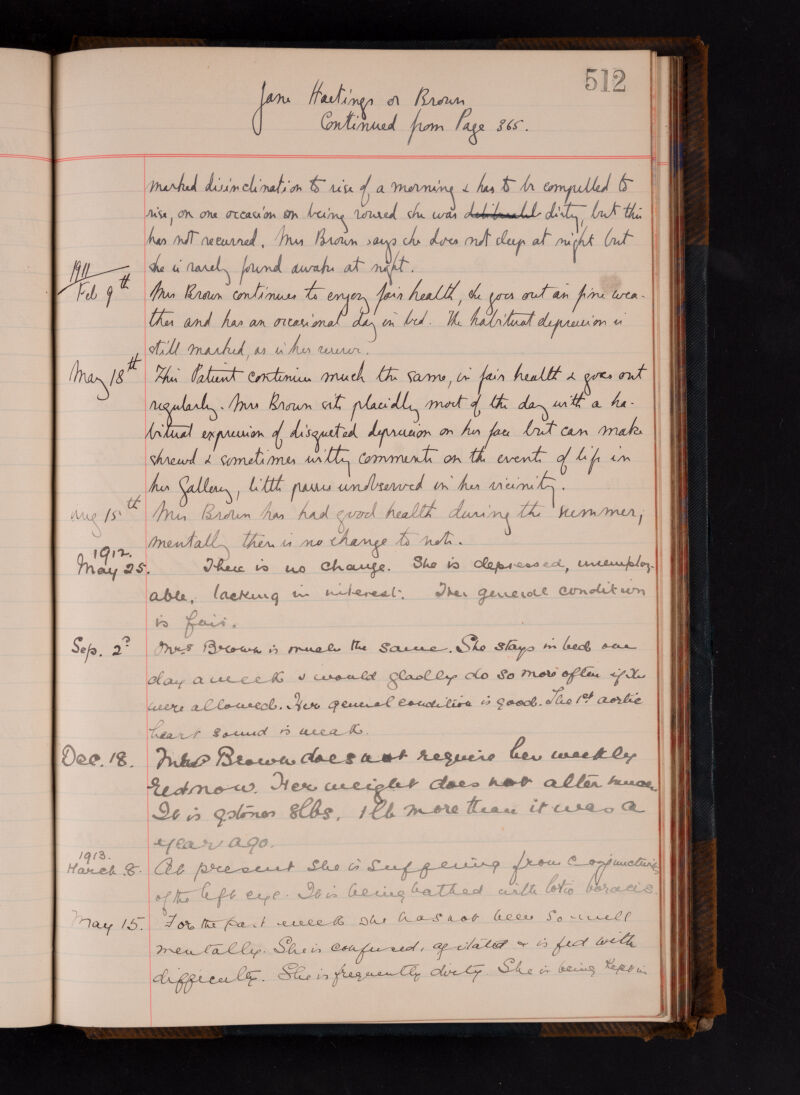 512
Jane Hastings or Brown
Continued from Page 365.
marked disinclination to rise of a morning & has to be compelled to
rise, on one occasion on being roused she was deliberately dirty, but this
has not recurred. Mrs Brown says she does not sleep at night but
she is rarely found awake at night.
1911
Feb 9th Mrs Brown continues to enjoy fair health, she goes out in fine wea-
ther and has an occasional day in bed. The habitual depression is
still marked, as is her
May 18th This Patient continues much the same, in fair health & goes out
regularly. Mrs Brown sits placidly most of the day with a ha-
bitual expression of disgusted depression on her face but can make
shrewd & sometimes witty comments on the events of life in
her Gallery, little passes unobserved in her vicinity.
Aug 15th Mrs Brown has had good health during the summer,
mentally there is no change to note.
1912.
May 25. There is no change. She is depressed, unemploy-
able, lacking in interest. Her general condition
is fair.
Sep. 2d Mrs Brown is much the same. She stays in bed one
day a week & would gladly do so more often if she
were allowed. Her general condition is good. The 1st aortic
heart sound is weak.
Dec. 18. Mrs Brown does not require her weekly
bed now. Her weight does not alter much
It is 9 stones 8 lbs, 1 lb more than it was a
year ago.
1913.
March 8. At present she is suffering from conjunctivitis
of the left eye. It is being bathed with lotio boracis.
May 15. For the past week she has not been so well
mentally. She is confused, agitated & is fed with
difficulty. She is frequently dirty. She is being kept in